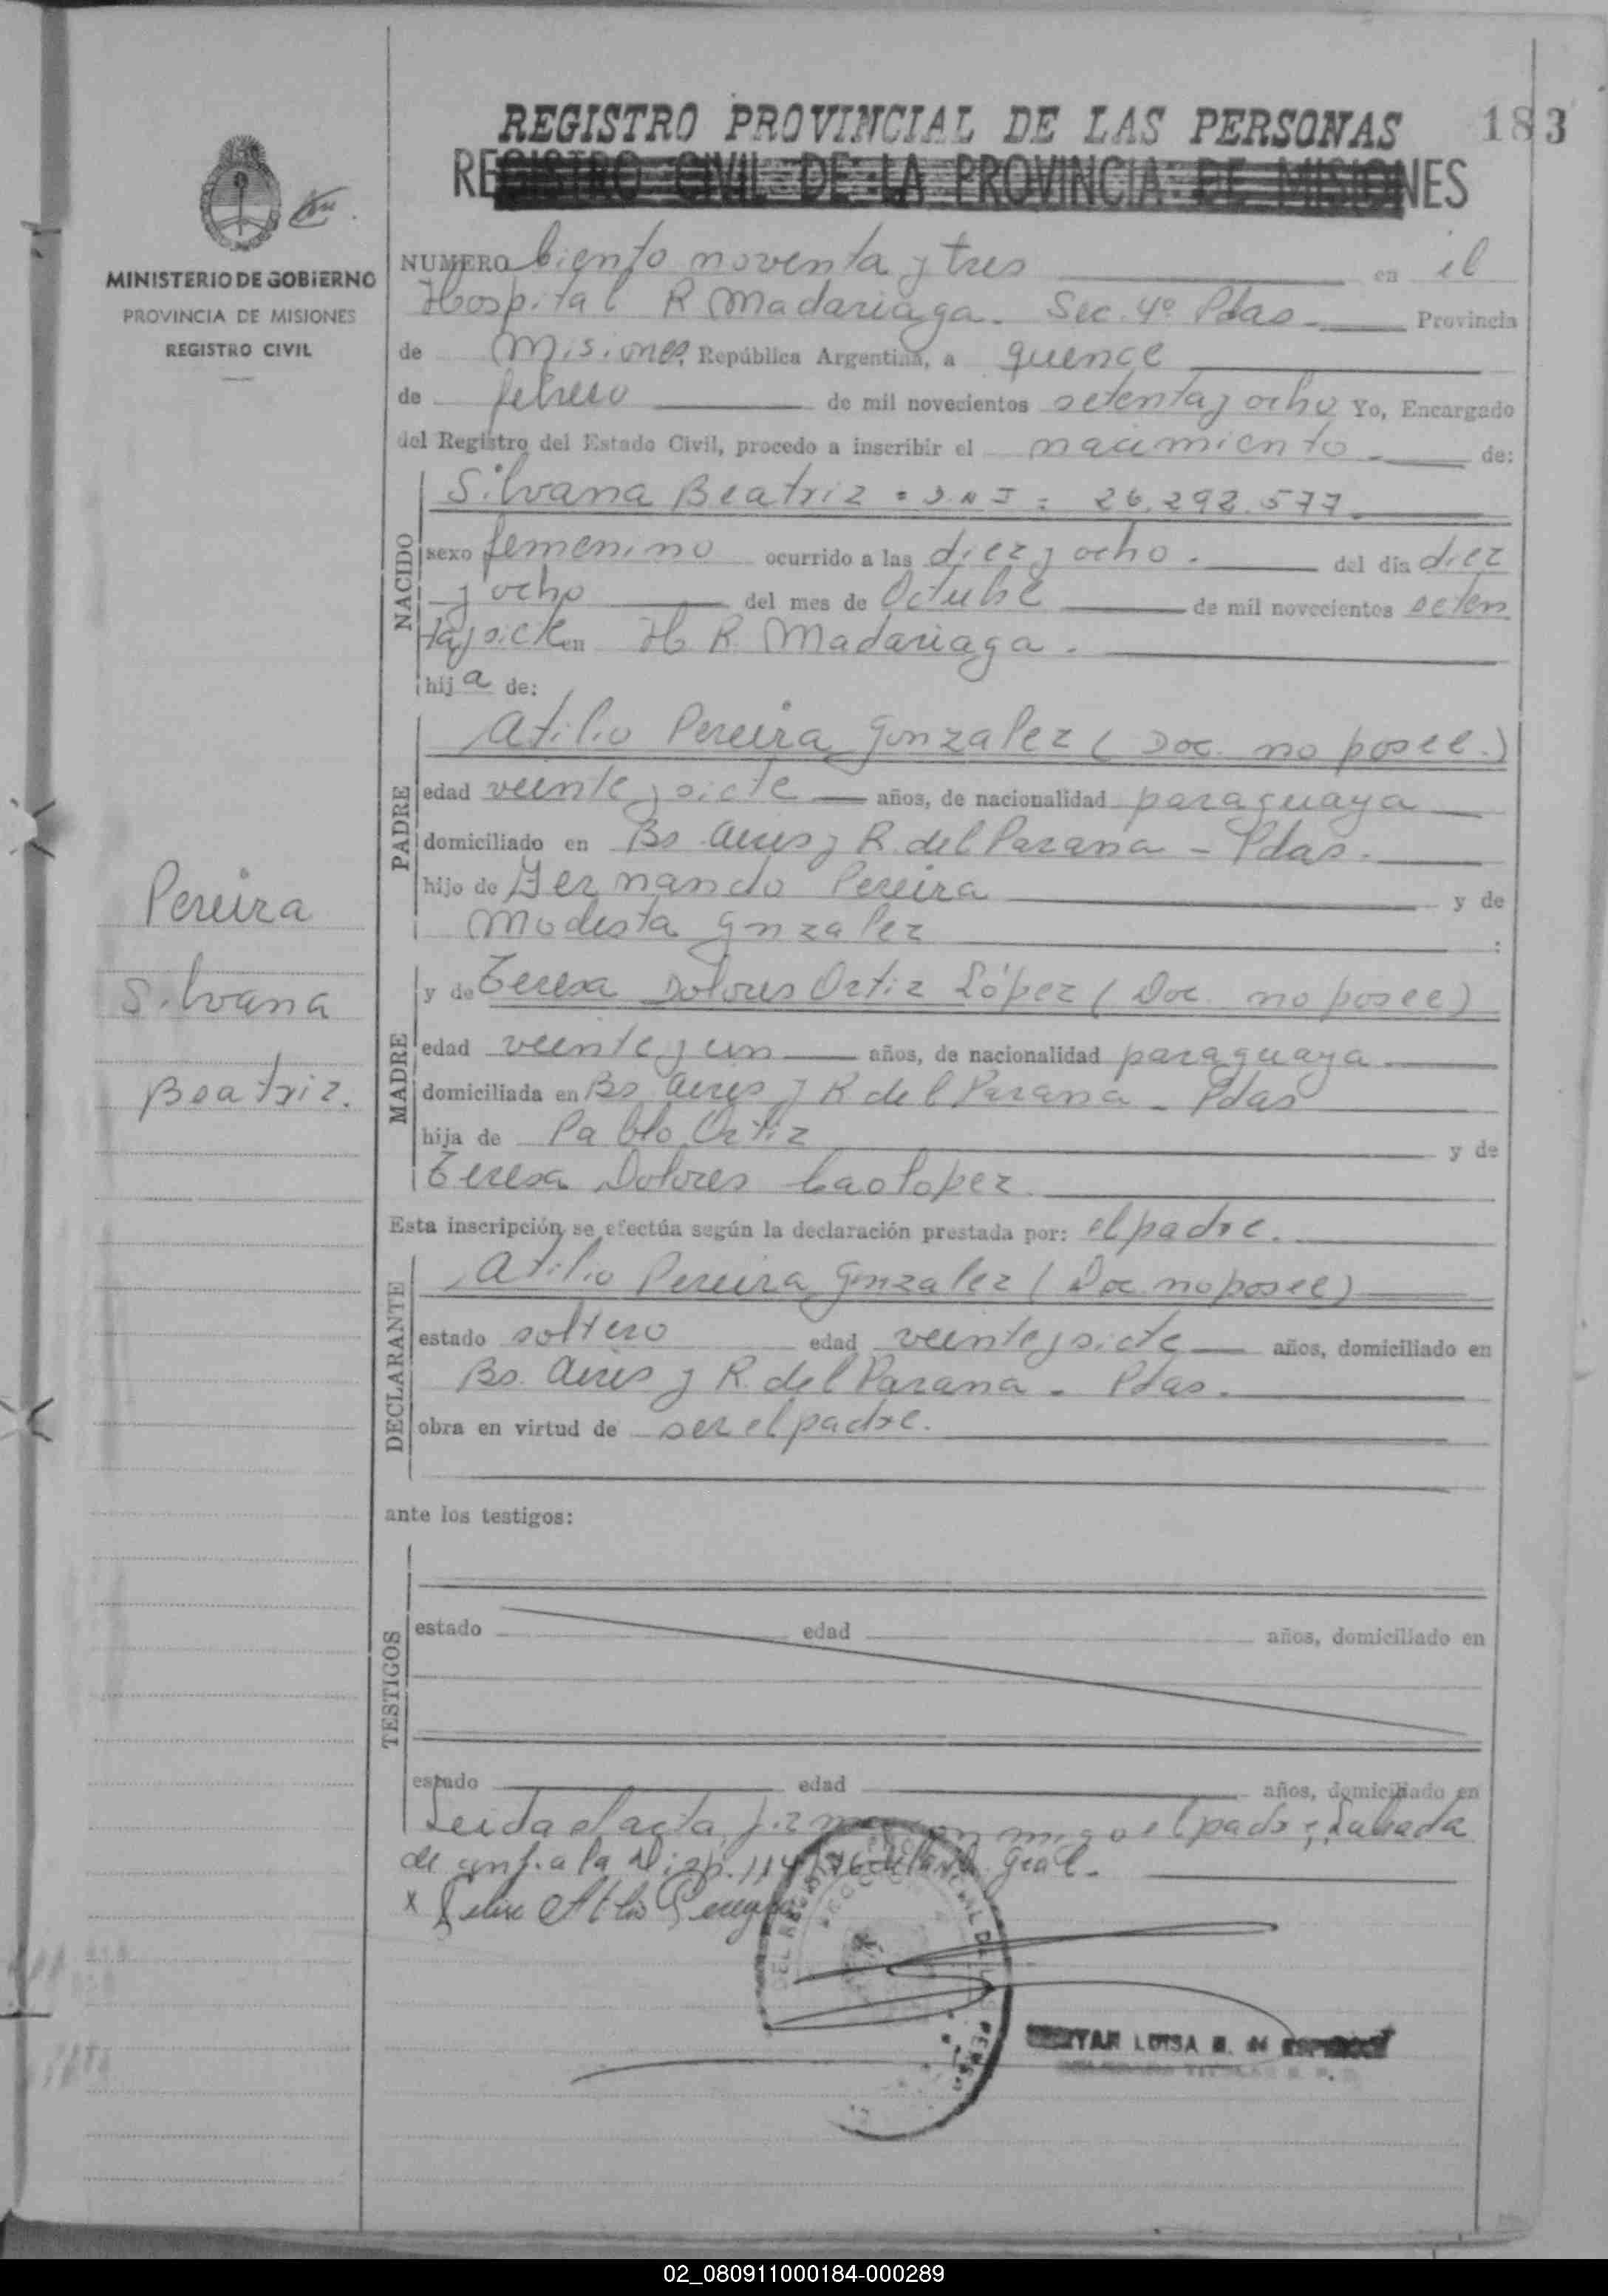 REGISTRO PROVINCIAL DE LAS PERSONAS
183
REGISTRO CIVIL DE LA PROVINCIA DE MISIONES
MINISTERIO DE GOBIERNO
PROVINCIA DE MISIONES
REGISTRO CIVIL
NUMERO Ciento noventa y tres en el
Hospital R Madariaga. Sec. 4º Pdas. Provincia
de Misiones, República Argentina, a quince
de febrero de mil novecientos setenta y ocho Yo, Encargado
del Registro del Estado Civil, procedo a inscribir el nacimiento de:
NACIDO
Silvana Beatriz = D.N.I = 26.292.577.
sexo femenino ocurrido a las diez y ocho. del día diez
y ocho del mes de Octubre de mil novecientos seten
ta y siete en H R. Madariaga.
hija de:
PADRE
Atilio Pereira Gonzalez (Doc. no posee.)
edad veinte y siete años, de nacionalidad paraguaya
domiciliado en Bs. Aires y R. del Parana - Pdas.
hijo de Fernando Pereira y de
Modesta Gnzalez :
Pereira
Silvana
Beatriz.
MADRE
y de Teresa Dolores Ortiz López (Doc. no posee)
edad veinte y un años, de nacionalidad paraguaya
domiciliada en Bs Aires y R del Parana - Pdas
hija de Pablo Ortiz y de
Teresa Dolores
Esta inscripción se efectúa según la declaración prestada por: el padre.
DECLARANTE
Atilio Pereira Gonzalez (Doc. no posee)
estado soltero edad veinte y siete años, domiciliado en
Bs. Aires y R. del Parana - Pdas.
obra en virtud de ser el padre.
ante los testigos:
TESTIGOS
estado edad años, domiciliado en
estado edad años, domiciliado en
Leida el acta, firma conmigo el padre, Labrada
de conf. a la Disp. 114/76 de la Gral.
x Atilio
LUISA
02_080911000184-000289